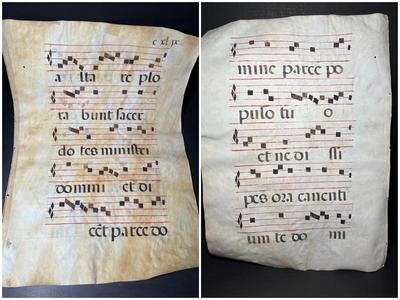 c xl ix
a lta re plo
ra bunt sacer
do tes ministri
domini et di
cẽt parce do
mine parce po
pulo tu o
et ne di ssi
pes ora canenti
um te do mi